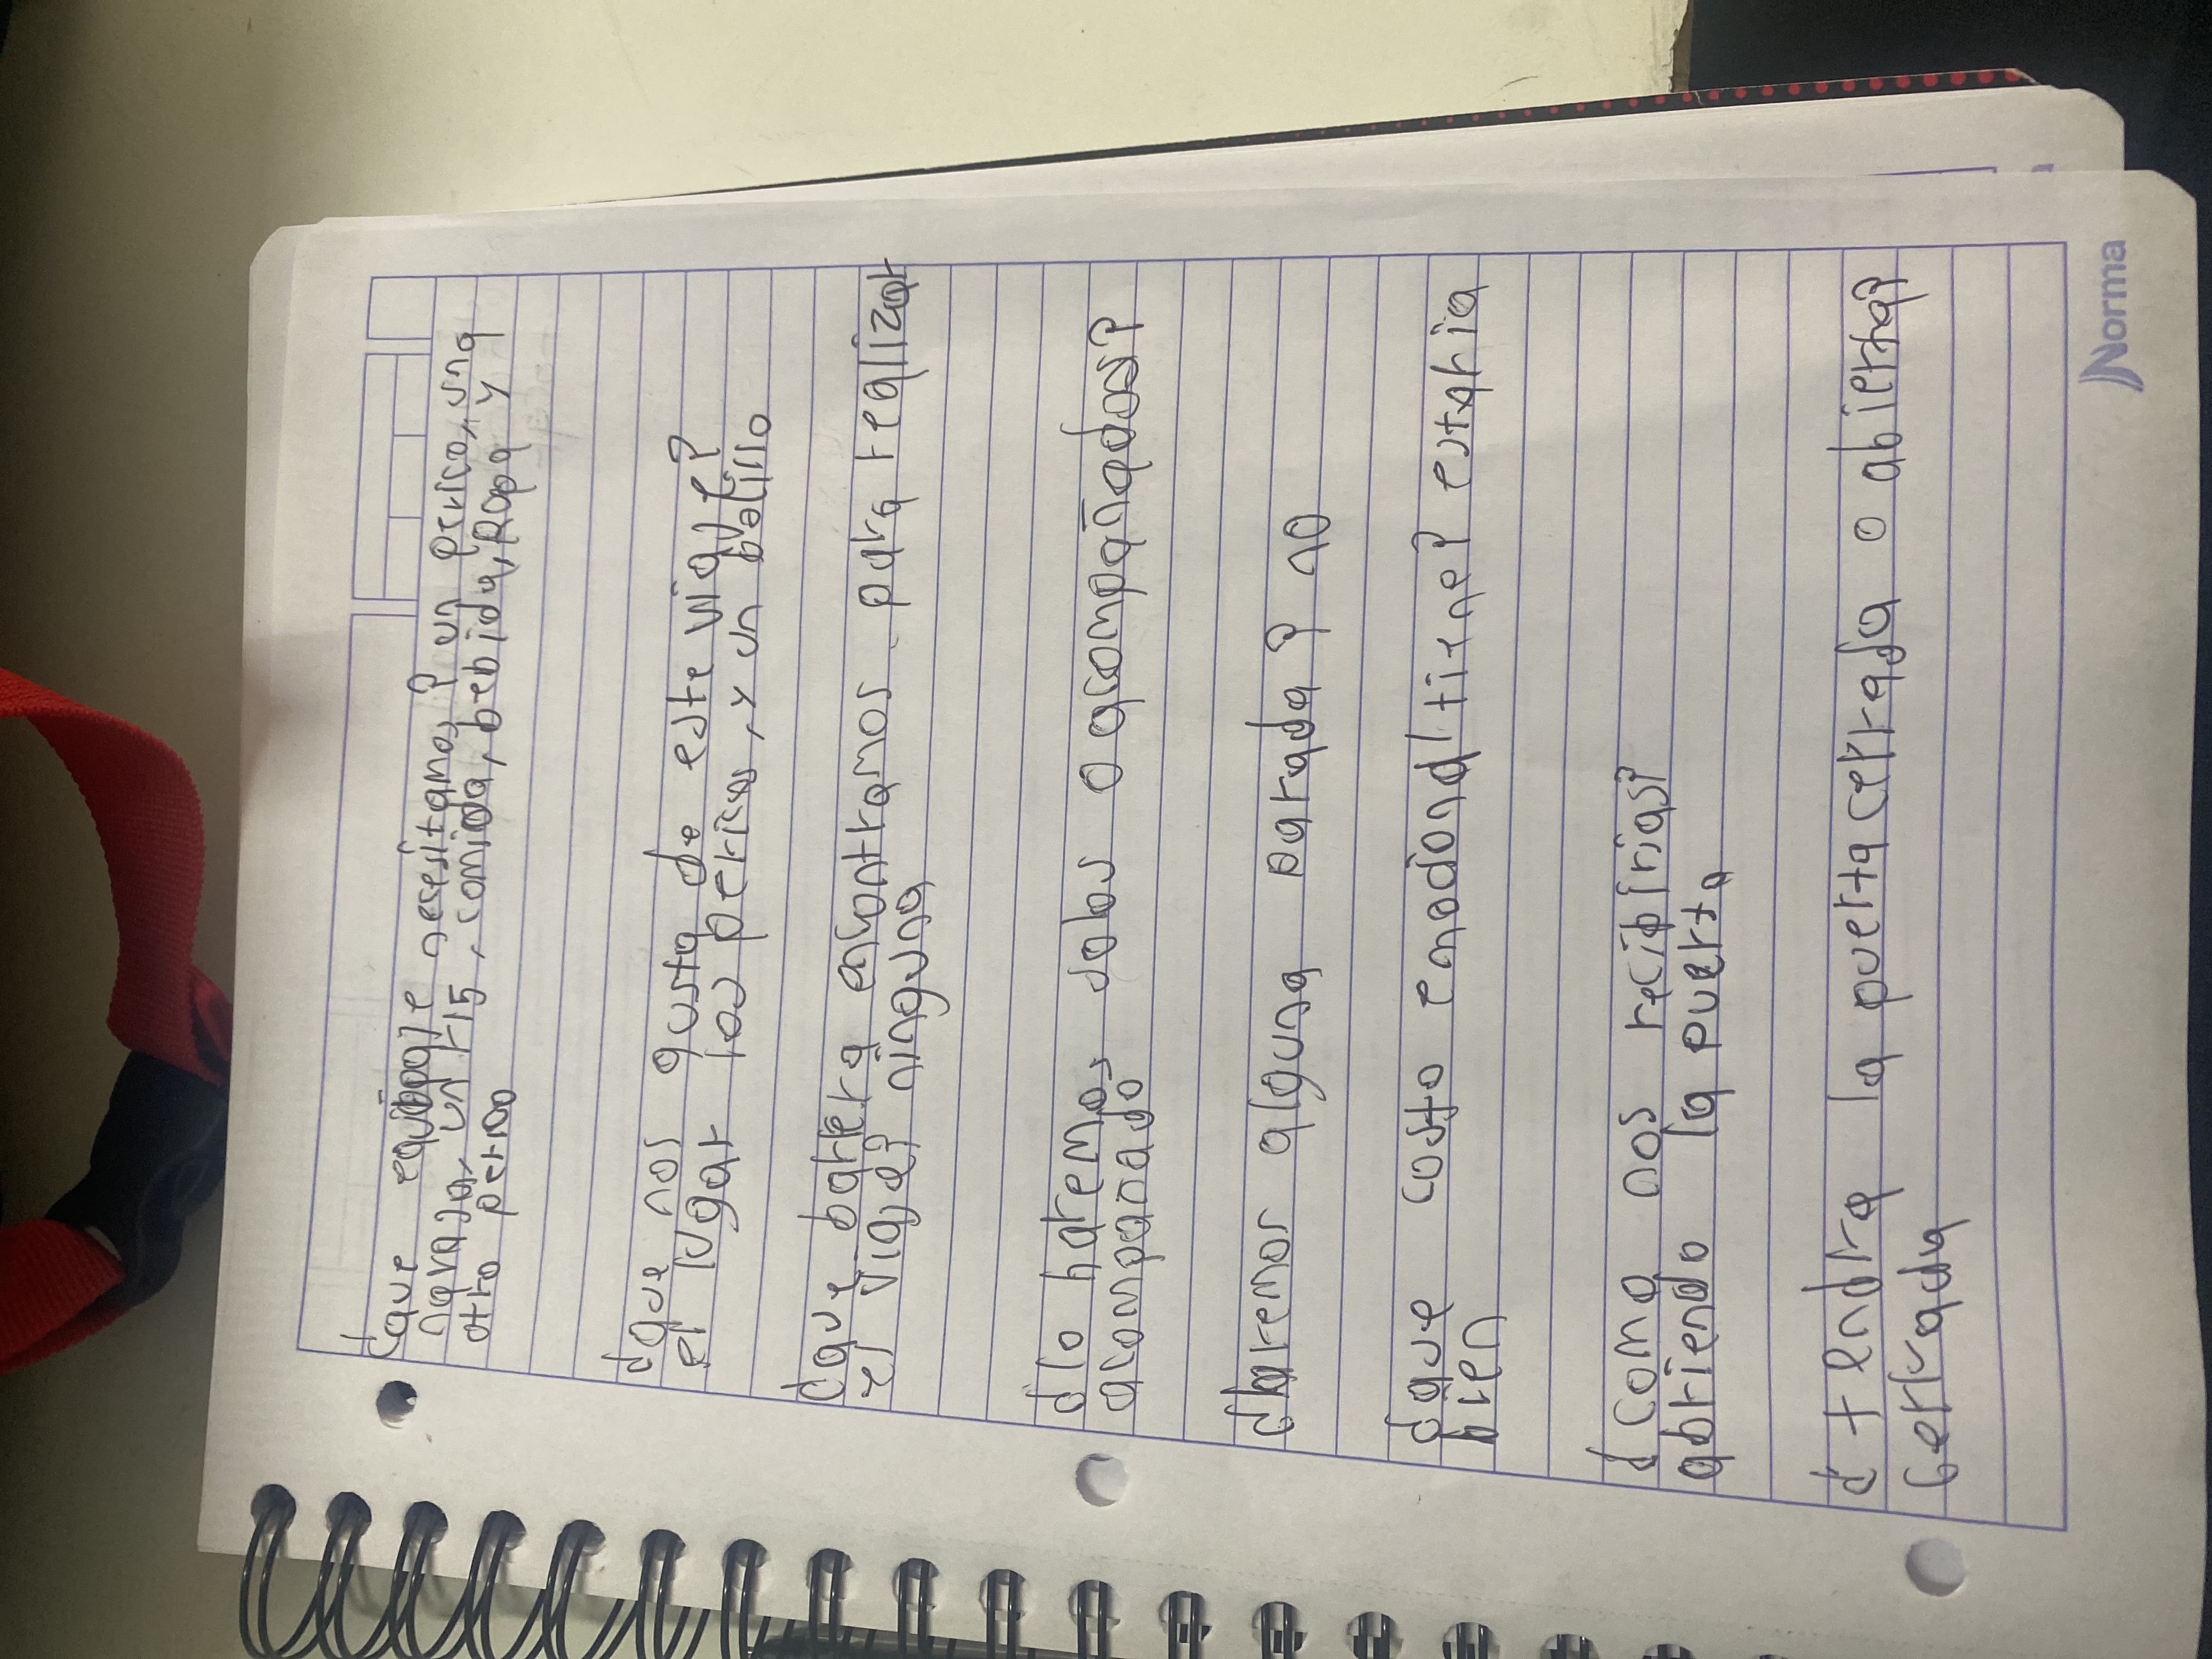 ¿que equipage nesesitamos? un perico, una
navaja, un r15, comida, bebida, Ropa y
otro perico
¿que nos gusta de este viaje?
el lugar los pericos, y un balillo
¿que barrera encontramos para realizar
el viaje? ninguna
¿lo haremos solos o acompañados?
acompañado
¿haremos alguna parada? no
¿que costo emocional tiene? estaria
bien
¿como nos recibirias?
abriendo la puerta
¿tendra la puerta cerrada o abierta?
cerrada
Norma